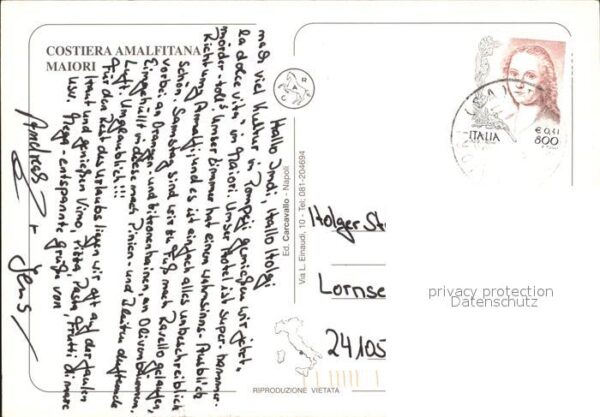 COSTIERA AMALFITANA
MAIORI
Hallo Jindi, Hallo Holgi
nach viel Kultur in Pompeji genießen wir jetzt
"la dolce vita" in Maiori. Unser Hotel ist super-hammer-
mörder-toll! Unser Zimmer hat einen wahnsinns-Ausblick
Richtung Amalfi, und es ist einfach alles unbeschreiblich
schön. Samstag sind wir zu Fuß nach Ravello gelaufen,
vorbei an Orangen- und Zitronenhainen, an Olivenbäumen,
Eingehüllt in diese nach Pinien- und Blüten duftende
Luft. Unglaublich!!!
Für den Rest des Urlaubs liegen wir oft auf der faulen
Haut und genießen Vino, Pizza, Pasta, Frutti di mare
usw. Mega-entspannte Grüße von
Andreas + Jens
Ed. Carcavallo - Napoli
Via L. Einaudi, 10 - Tel: 081-204694
ITALIA
€ 0,41
800
Holger St
Lornse
24105
privacy protection
Datenschutz
RIPRODUZIONE VIETATA